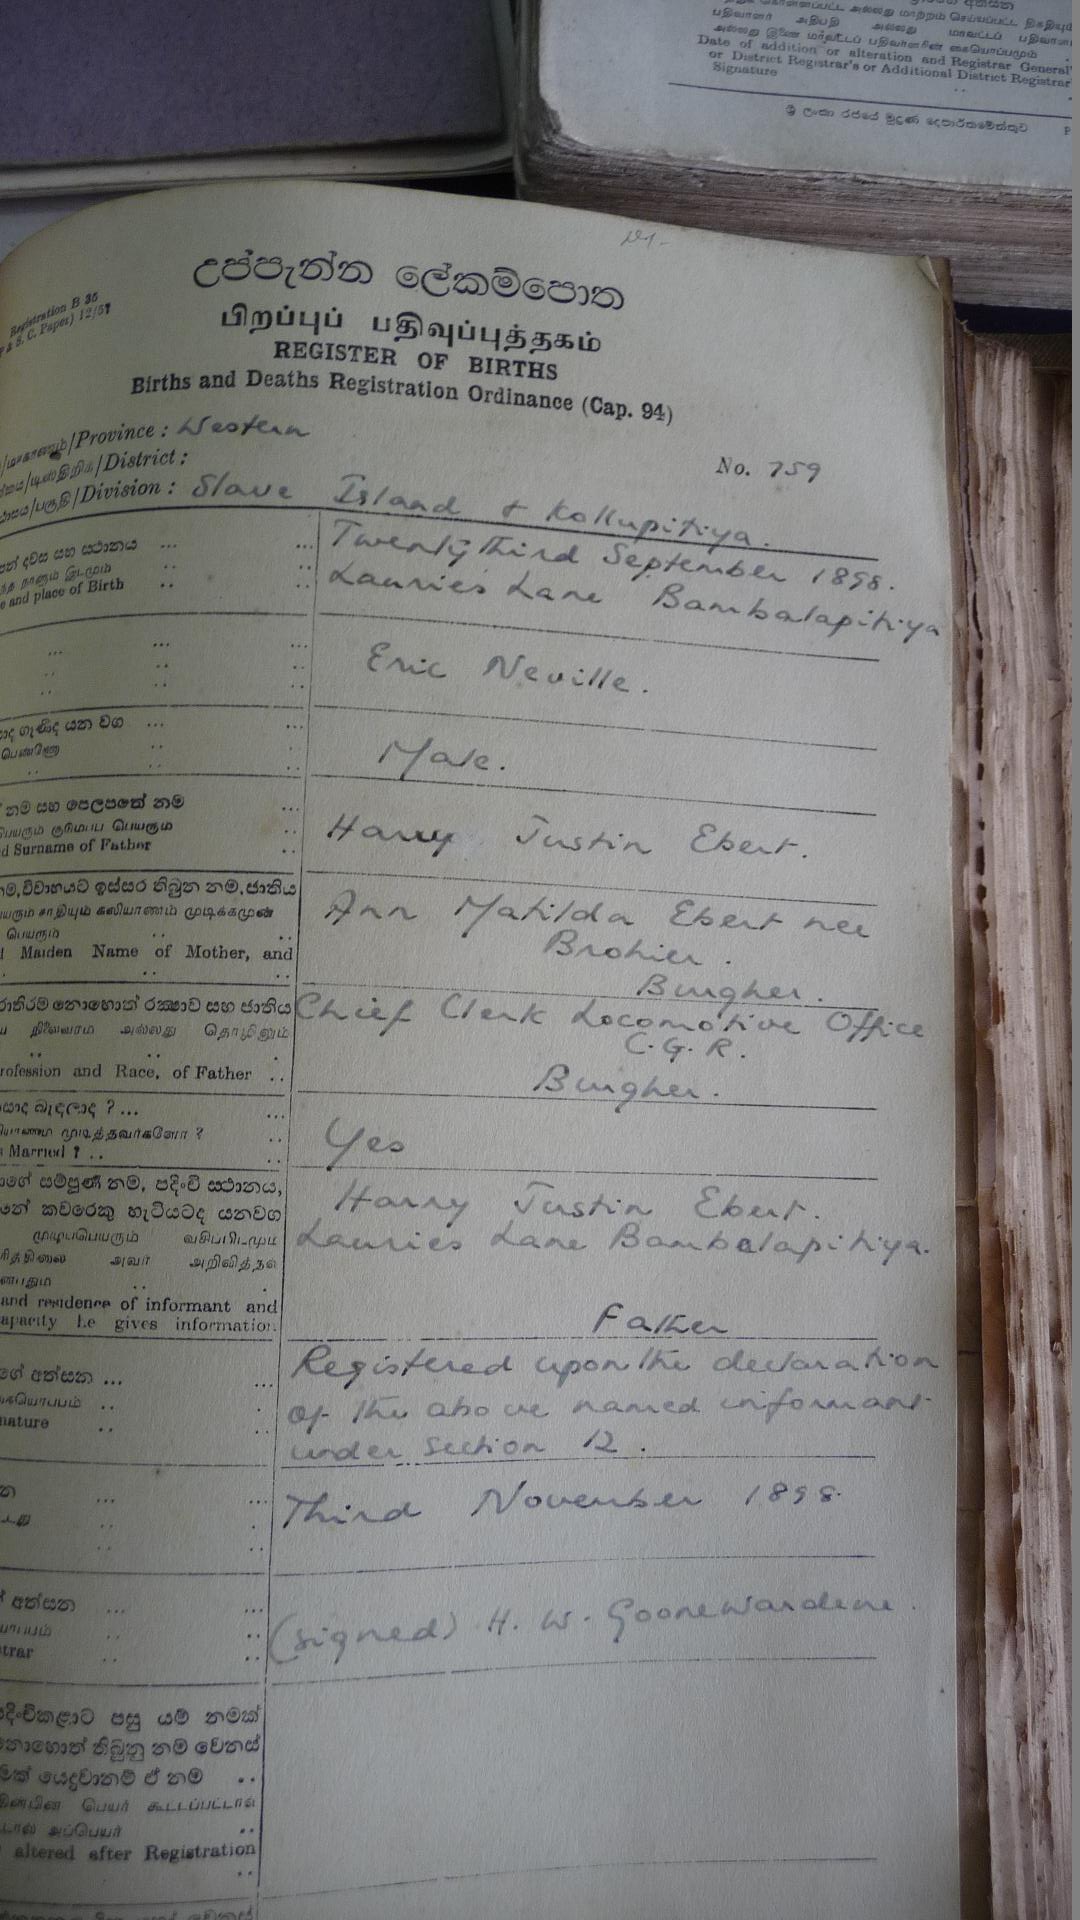 අත්සන
පතිවාளர් அதிபதி அல்லது மாவட்டப்
Date of addition or alteration and Registrar General's
or District Registrar's or Additional District Registrar
Signature
ශ්‍රී ලංකා රජයේ මුද්‍රණ දෙපාර්තමේන්තුව
උප්පැන්න ලේකම්පොත
பிறப்புப் பதிவுப்புத்தகம்
REGISTER OF BIRTHS
Births and Deaths Registration Ordinance (Cap. 94)
Registration B 35
& S. C. Paper) 12/57
/Province : Western
No. 759
/District :
/Division : Slave Island & Kollupitiya.
දවස සහ ස්ථානය ... ...
and place of Birth
Twenty third September 1898.
Lauries Lane Bambalapitiya
Eric Neville.
ගැණිද යන වග ... ...
Male.
නම සහ පෙලපතේ නම ...
பெயரும்
Surname of Father
Harry Justin Ebert.
විවාහයට ඉස්සර තිබුන නම, ජාතිය
சாதியும் கலியாணம் முடிக்கமுன்
பெயரும்
Maiden Name of Mother, and
Ann Matilda Ebert nee
Brohier.
Burgher.
නොහොත් රක්‍ෂාව සහ ජාතිය
அல்லது தொழிலும்
rofession and Race, of Father ..
Chief Clerk Locomotive Office
C. G. R.
Burgher.
බැඳලාද ? ...
முடித்தவர்களோ ?
Married ? ..
Yes
සම්පූර්ණ නම, පදිංචි ස්ථානය,
කවරෙකු හැටියටද යනවග
முழுப்பெயரும் வசிப்பிடமும்
அவர் அறிவித்தல்
and residence of informant and
capacity he gives information.
Harry Justin Ebert.
Lauries Lane Bambalapitiya.
Father
අත්සන ... ...
nature
Registered upon the declaration
of the above named informant
under Section 12.
Third November 1898.
අත්සන ... ...
trar
(signed) H. W. Goonewardene.
පසු යම් නමක්
නොහොත් තිබුනු නම වෙනස්
යෙදුවානම් ඒ නම ..
பெயர் கூட்டப்பட்டால்
அப்பெயர்
altered after Registration